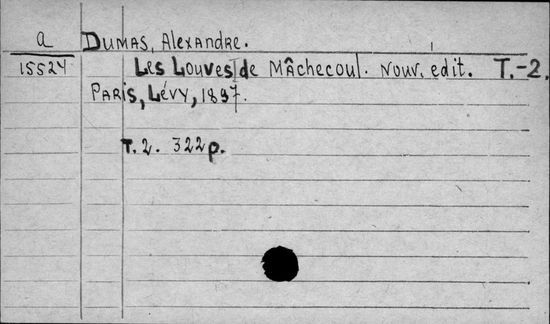 a DUMAS, Alexandre.
15524 Les Louves de Mâchecoul. Nouv. edit. T.-2.
PARIS, Lévy, 1897.
T. 2. 322 p.